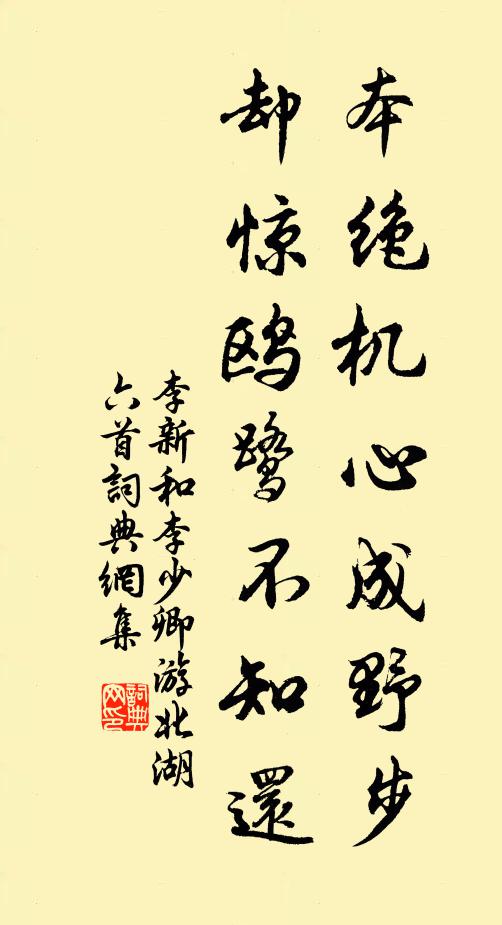 本绝机心成野步
却惊鸥鹭不知還
李新和李少卿游北湖
六首詞典網集
詞典
网印